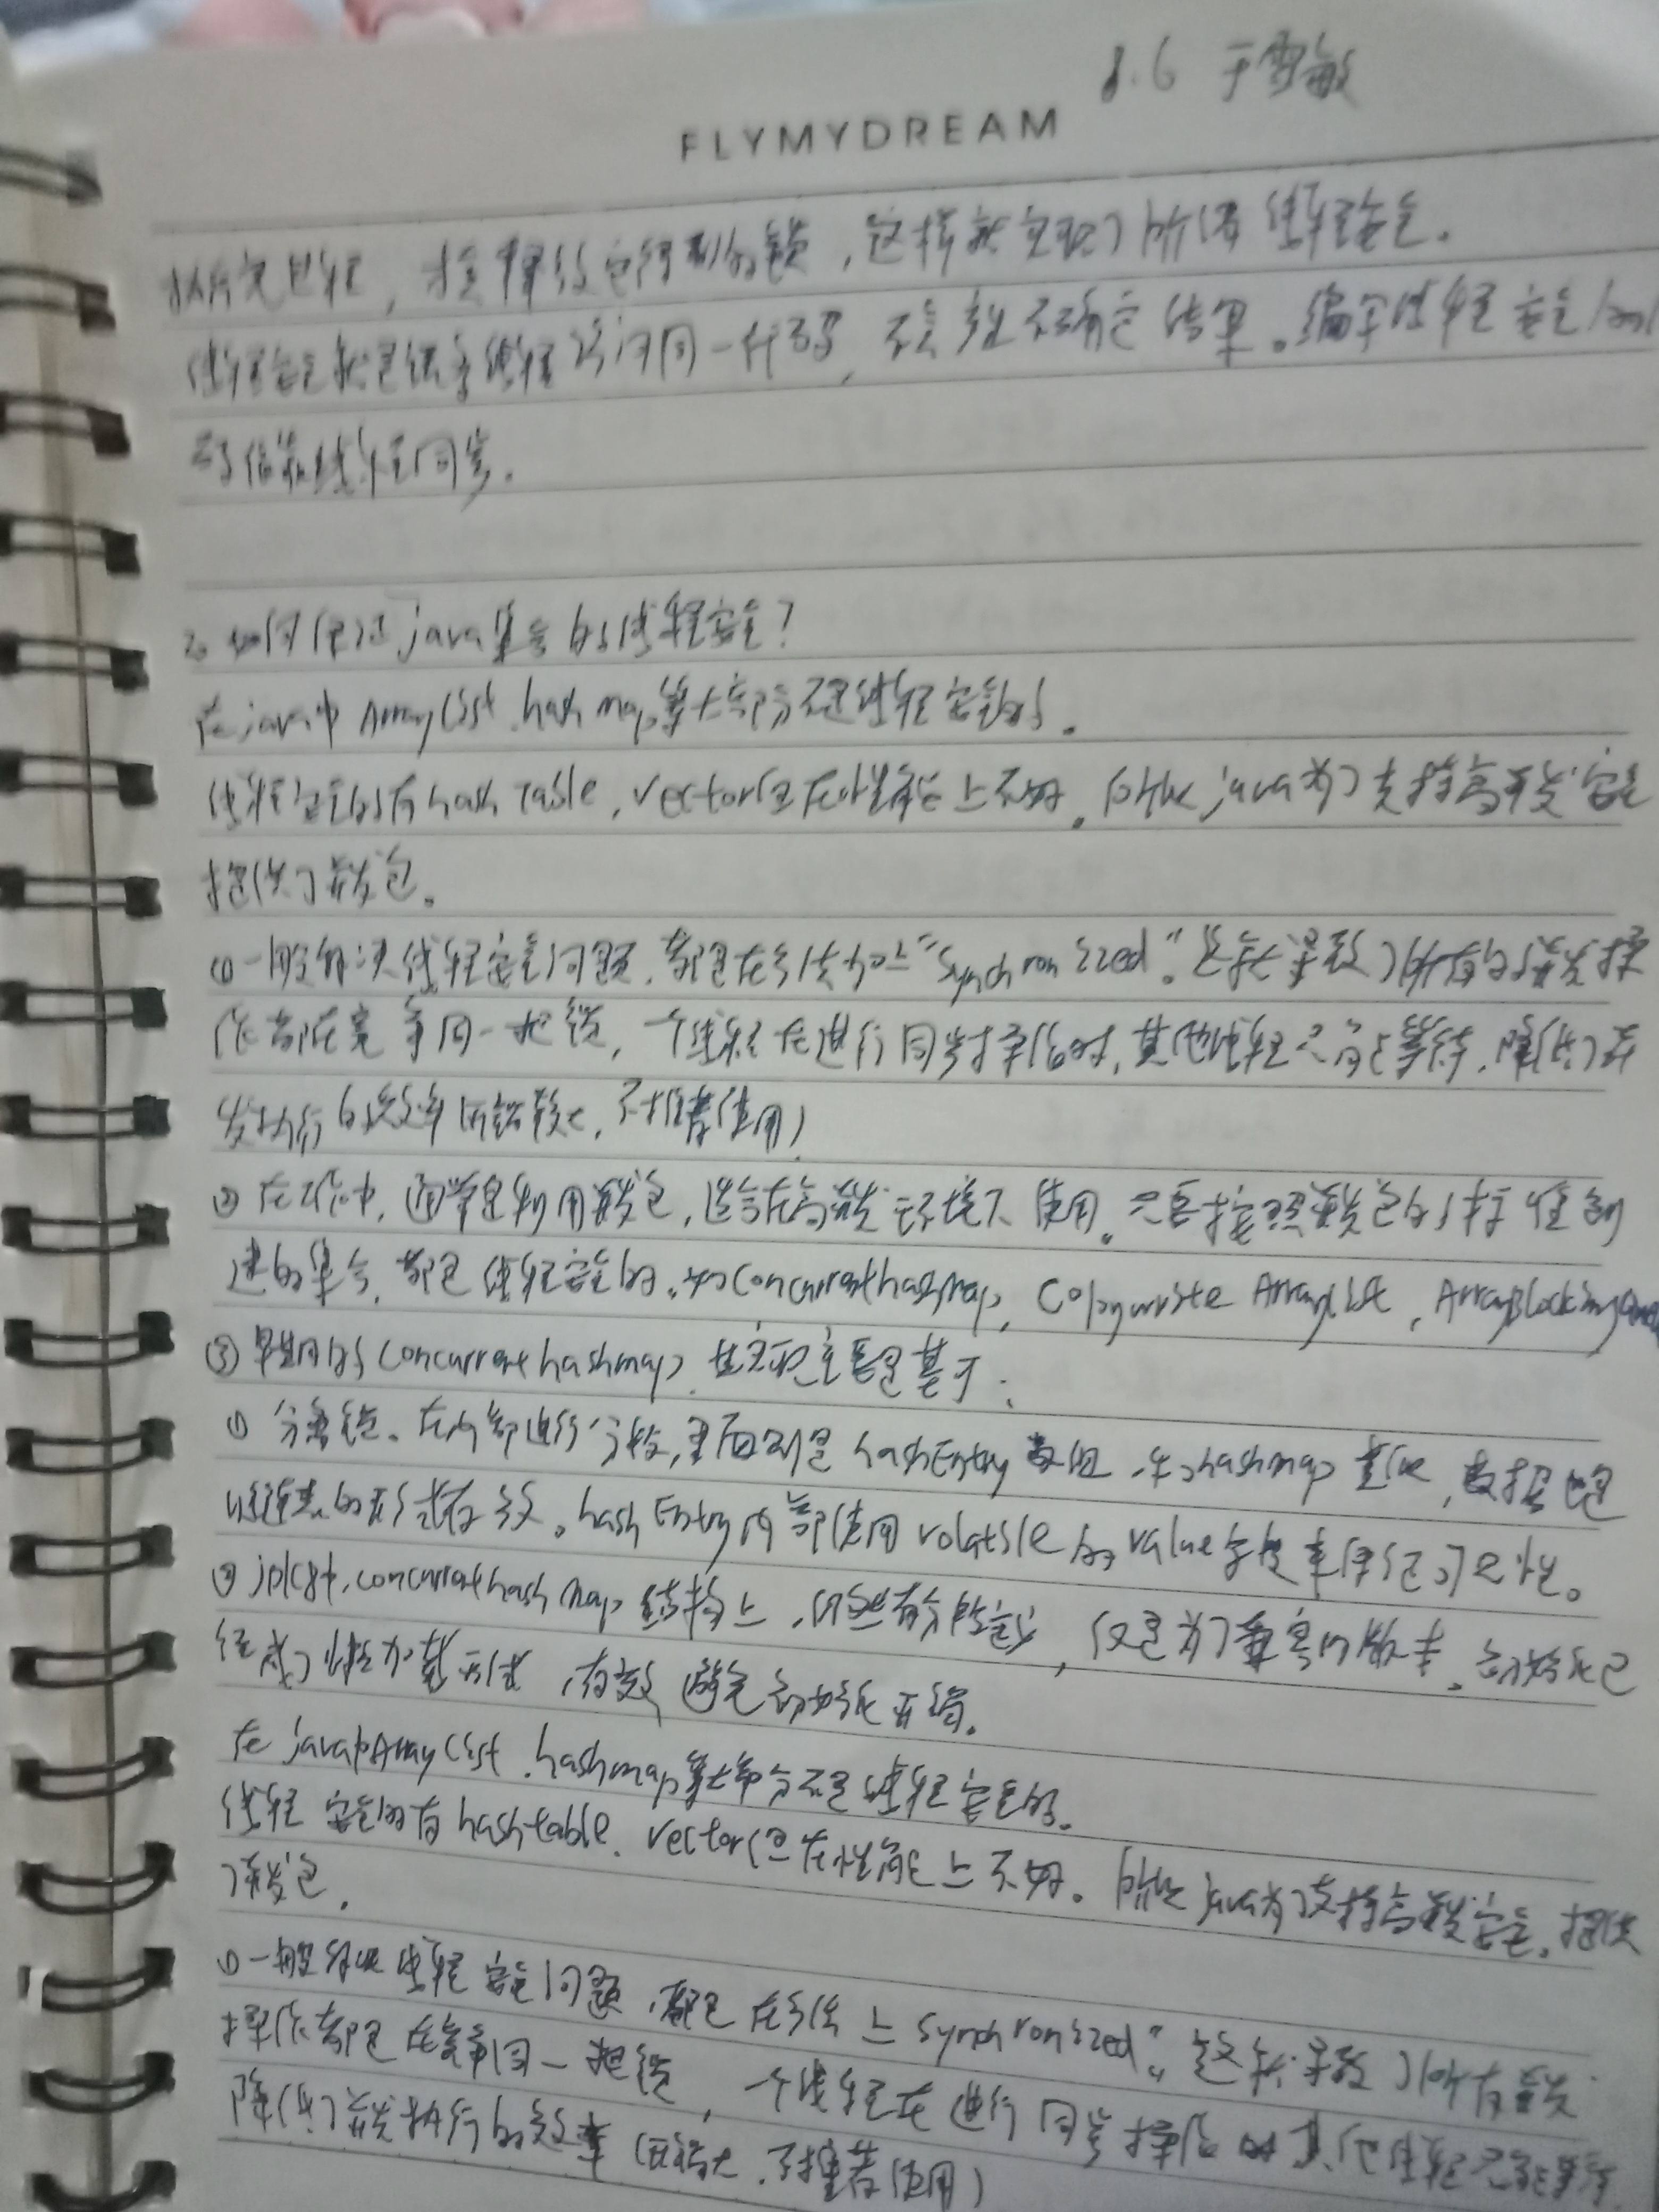 8.6 于雪敏
FLYMYDREAM
执行完毕,才会释放它得到的锁,这样就实现了所谓线程安全。
线程安全就是说多线程访问同一代码,不会产生不确定结果。编写线程安全的代
码依靠线程同步。
2. 如何保证java集合的线程安全?
在java中ArrayList.hashmap等大部分不是线程安全的。
线程安全的有hash Table,vector但在性能上不好。所以java为了支持高并发安全
提供了并发包。
①一般解决线程安全问题,都是在方法加上"Synchronized"。这就导致了所有的并发操
作都在竞争同一把锁,一个线程在进行同步操作时,其他线程只能等待,降低了并
发执行的效率(开销较大,不推荐使用)
②在工作中,通常是利用并发包,适合在高并发环境下使用。只要按照并发包的标准创
建的集合,都是线程安全的。如Concurrenthashmap,Copywrite ArrayList,ArrayBlockingQueue
③早期的Concurrenthashmap,其实现主要是基于:
① 分离锁。在内部进行分段,里面则是hashEntry数组,与hashmap类似,数据也是
以链表的形式存放。hashEntry内部使用volatile的value字段来保证可见性。
② jdk8中,concurrenthashmap结构上,仍然有分段定义,仅是为了兼容旧版本。初始化已
经成了懒加载形式,有效避免初始化开销。
在java中ArrayList.hashmap等大部分不是线程安全的。
线程安全的有hashtable.vector但在性能上不好。所以java为了支持高并发安全。提供
了并发包。
①一般解决线程安全问题,都是在方法上synchronized"。这就导致了所有并发
操作都是在竞争同一把锁,一个线程在进行同步操作时其他线程只能等待
降低了并发执行的效率(开销大,不推荐使用)